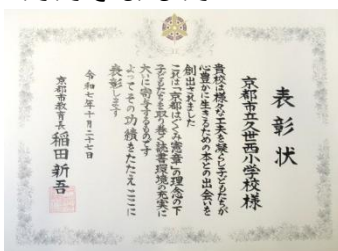 表彰状
京都市立久世西小学校様
貴校は様々な工夫を凝らし子どもたちが
心豊かに生きるための本との出会いを
創出されました
これは「京都はぐくみ憲章」の理念の下
子どもたちを取り巻く読書環境の充実に
大いに寄与するものです
よってその功績をたたえここに
表彰します
令和七年十月二十七日
京都市教育長 稲田新吾